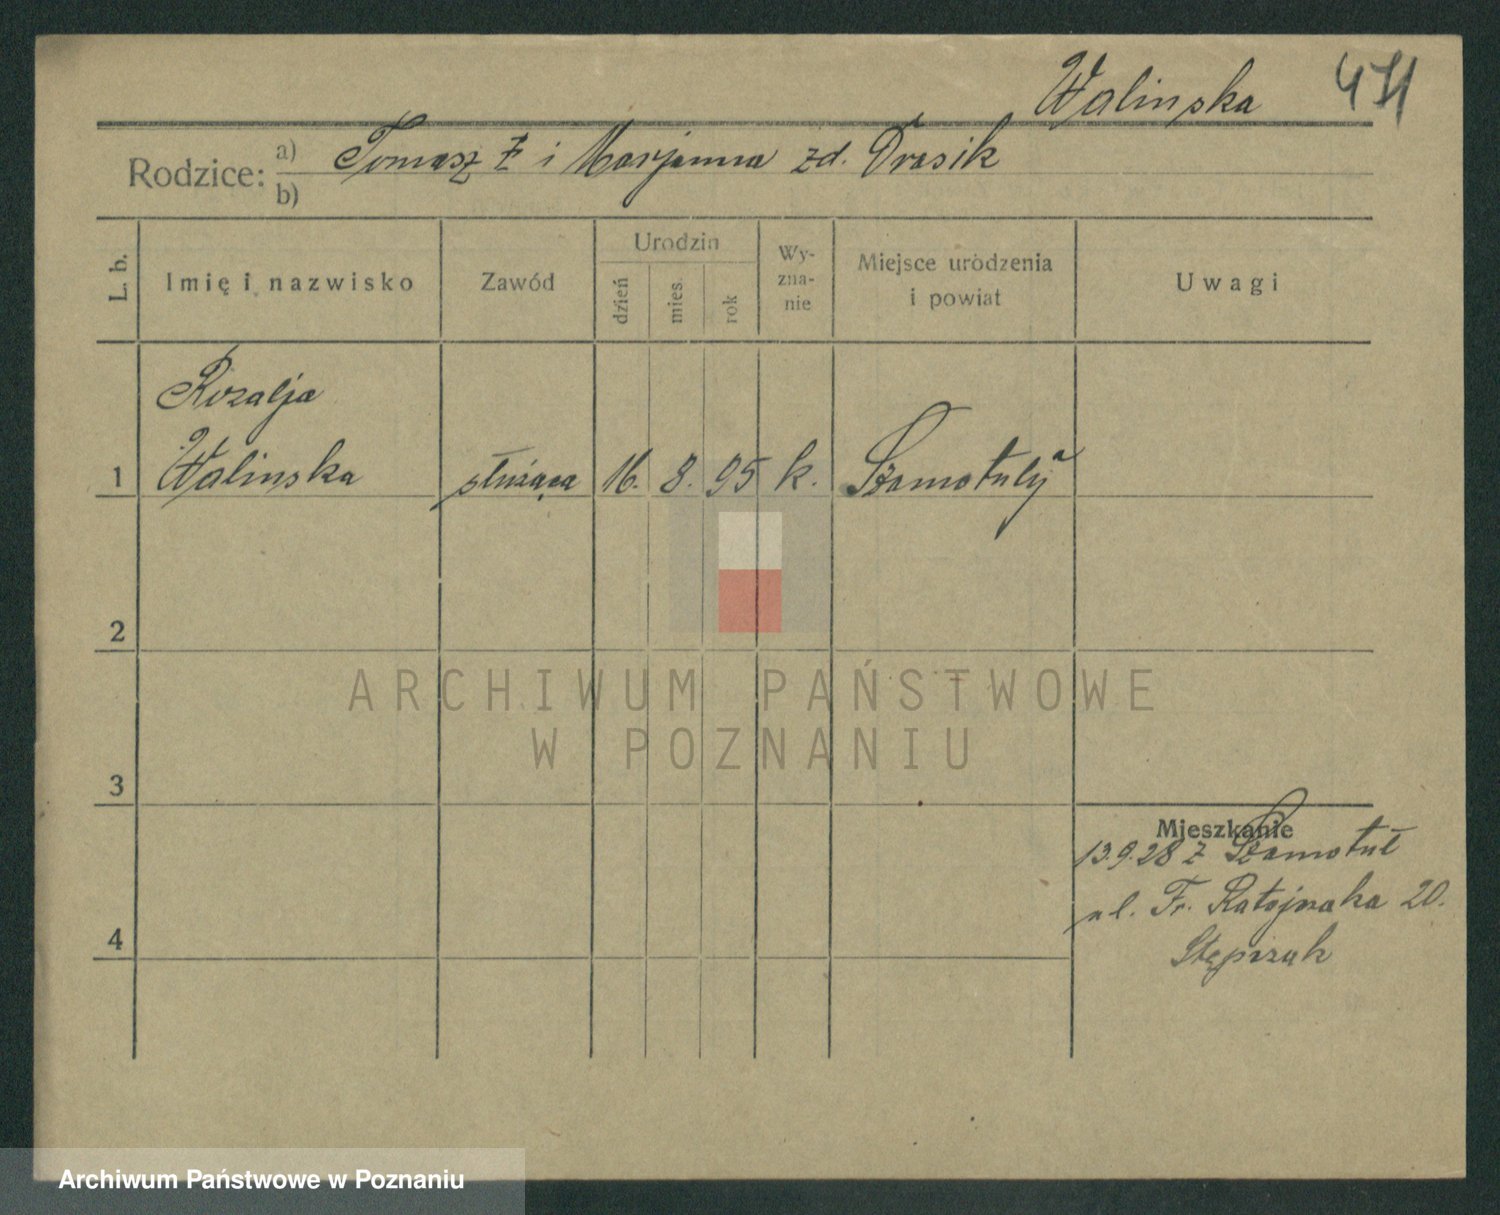 Walinska 471
Rodzice: a) Tomasz i Marjanna zd. Drasik
b)
L. b. Imię i nazwisko Zawód Urodzin dzień mies. rok Wy-zna-nie Miejsce urodzenia i powiat Uwagi
Rozalja
1 Walinska służąca 16. 8. 95 k. Szamotuły
2
ARCHIWUM PAŃSTWOWE
W POZNANIU
3
Mieszkanie
13.9.28 z Szamotuł
4 ul. Fr. Ratajczaka 20.
Stępczak
Archiwum Państwowe w Poznaniu